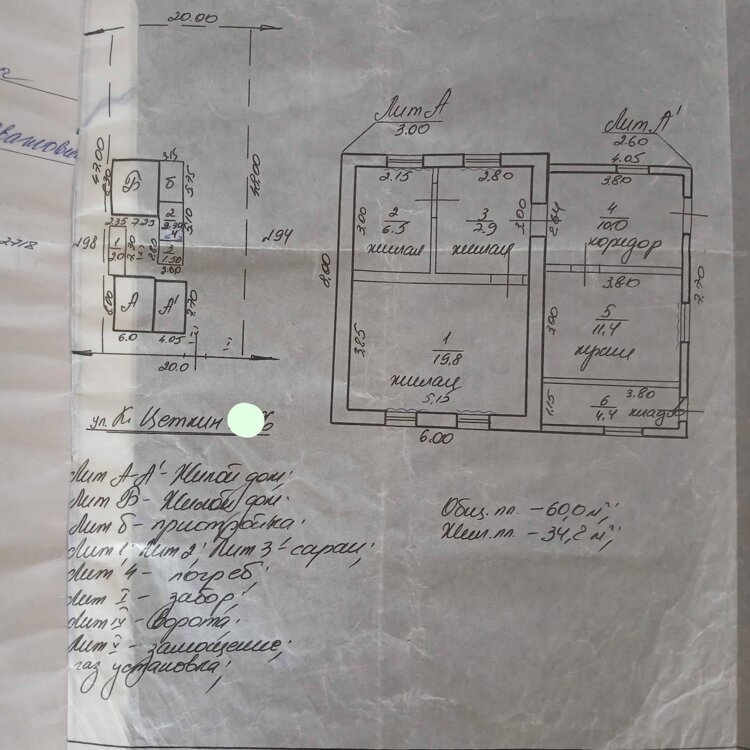 20.00
47.00
Б
б
3.15
5.75
2
5.10
2.35
7.25
198
1
20
7.30
2.60
1.50
2.80
194
48.00
А
А'
6.0
4.05
7.70
I
20.0
Лит А
3.00
Лит А'
2.60
4.05
3.80
2.15
2.80
3.00
2
6.5
жилая
3
7.9
жилая
3.00
2.64
4
10.0
коридор
8.00
3.80
7.70
3.85
1
19.8
жилая
5.15
3.00
5
11.4
кухня
6
4.4
клад
3.80
1.15
6.00
ул. К. Цеткин
Лит А-А' - Жилой дом;
Лит Б - Жилой дом;
Лит б - пристройка;
Лит 1; Лит 2; Лит 3 - сараи;
Лит 4 - погреб;
Лит I - забор;
Лит IV - Ворота;
Лит V - замощение;
газ установка;
Общ. пл. - 60,0 м²;
Жил. пл. - 34,2 м²;
2718